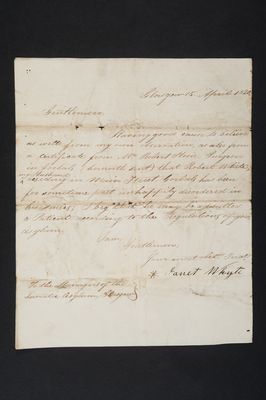 Glasgow 15 April 1822
Gentlemen
Having good cause to believe
as well from my own observation, as also from
a Certificate from Mr Robert Surgeon
in Gorbals (herewith sent) that Robert White
my Husband
residing in Main Street Gorbals has been
for sometime past unhappily disordered in
his he may be admitted
a Patient according to the Regulations of your
Asylum.
I am
Gentlemen,
Your most obt Servt
Janet Whyte
To the Managers of the
Lunatic Asylum Glasgow